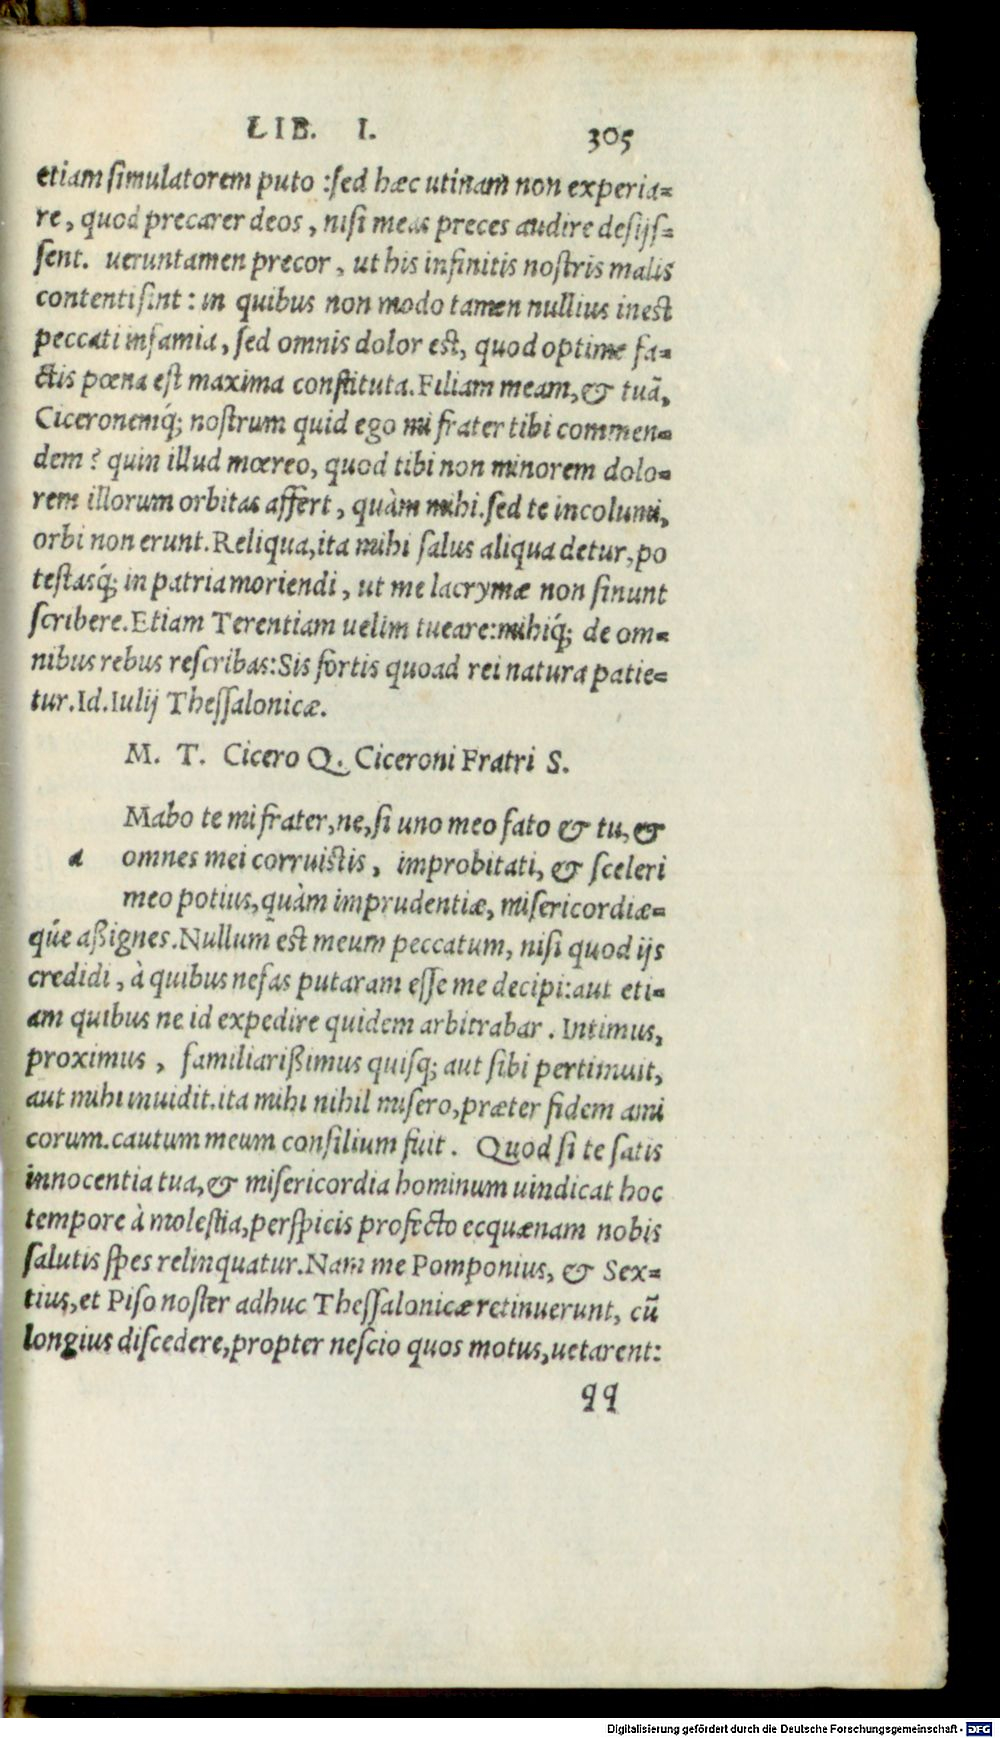 LIB. I. 305
etiam simulatorem puto :sed hæc utinam non experia=
re, quod precarer deos, nisi meas preces audire desijs=
sent. ueruntamen precor, ut his infinitis nostris malis
contenti sint: in quibus non modo tamen nullius inest
peccati infamia, sed omnis dolor est, quod optime fa=
ctis pœna est maxima constituta. Filiam meam, & tuā,
Ciceronemq́; nostrum quid ego mi frater tibi commen=
dem? quin illud mœreo, quod tibi non minorem dolo=
rem illorum orbitas affert, quàm mihi. sed te incolumi,
orbi non erunt. Reliqua, ita mihi salus aliqua detur, po
testasq́; in patria moriendi, ut me lacrymæ non sinunt
scribere. Etiam Terentiam uelim tueare: mihiq́; de om=
nibus rebus rescribas: Sis fortis quoad rei natura patie=
tur. Id. Iulij Thessalonicæ.
M. T. Cicero Q. Ciceroni Fratri S.
Mabo te mi frater, ne, si uno meo fato & tu, &
a omnes mei corruistis, improbitati, & sceleri
meo potius, quàm imprudentiæ, misericordiæ=
q́ue aßignes. Nullum est meum peccatum, nisi quod ijs
credidi, à quibus nefas putaram esse me decipi: aut eti=
am quibus ne id expedire quidem arbitrabar. Intimus,
proximus, familiarißimus quisq; aut sibi pertimuit,
aut mihi inuidit. ita mihi nihil misero, præter fidem ami
corum. cautum meum consilium fuit. Quod si te satis
innocentia tua, & misericordia hominum uindicat hoc
tempore à molestia, perspicis profecto ecquænam nobis
salutis spes relinquatur. Nam me Pomponius, & Sex=
tius, et Piso noster adhuc Thessalonicæ retinuerunt, cū
longius discedere, propter nescio quos motus, uetarent:
qq
Digitalisierung gefördert durch die Deutsche Forschungsgemeinschaft - DFG